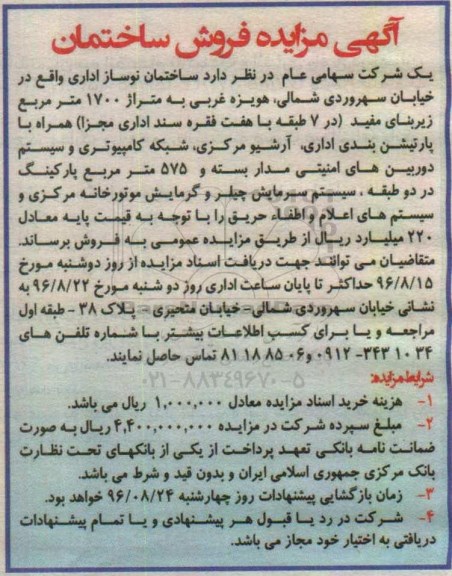 آگهی مزایده فروش ساختمان
یک شرکت سهامی عام در نظر دارد ساختمان نوساز اداری واقع در
خیابان سهروردی شمالی، هویزه غربی به متراژ ۱۷۰۰ متر مربع
زیربنای مفید (در ۷ طبقه با هفت فقره سند اداری مجزا) همراه با
پارتیشن بندی اداری، آرشیو مرکزی، شبکه کامپیوتری و سیستم
دوربین های امنیتی مدار بسته و ۵۷۵ متر مربع پارکینگ
در دو طبقه ، سیستم سرمایش چیلر و گرمایش موتورخانه مرکزی و
سیستم های اعلام و اطفاء حریق را با توجه به قیمت پایه معادل
۲۲۰ میلیارد ریال از طریق مزایده عمومی به فروش برساند.
متقاضیان می توانند جهت دریافت اسناد مزایده از روز دوشنبه مورخ
۹۶/۸/۱۵ حداکثر تا پایان ساعت اداری روز دو شنبه مورخ ۹۶/۸/۲۲ به
نشانی خیابان سهروردی شمالی- خیابان متحیری - پلاک ۳۸ - طبقه اول
مراجعه و یا برای کسب اطلاعات بیشتر با شماره تلفن های
۳۴ ۱۰ ۳۴۳-۰۹۱۲ و ۰۶ ۸۵ ۱۸ ۸۱ تماس حاصل نمایند.
۰۲۱-۸۸۳۴۹۶۷۰-۵
شرایط مزایده:
۱- هزینه خرید اسناد مزایده معادل ۱,۰۰۰,۰۰۰ ریال می باشد.
۲- مبلغ سپرده شرکت در مزایده ۴,۴۰۰,۰۰۰,۰۰۰ ریال به صورت
ضمانت نامه بانکی تعهد پرداخت از یکی از بانکهای تحت نظارت
بانک مرکزی جمهوری اسلامی ایران و بدون قید و شرط می باشد.
۳- زمان بازگشایی پیشنهادات روز چهارشنبه ۹۶/۰۸/۲۴ خواهد بود.
۴- شرکت در رد یا قبول هر پیشنهادی و یا تمام پیشنهادات
دریافتی به اختیار خود مجاز می باشد.